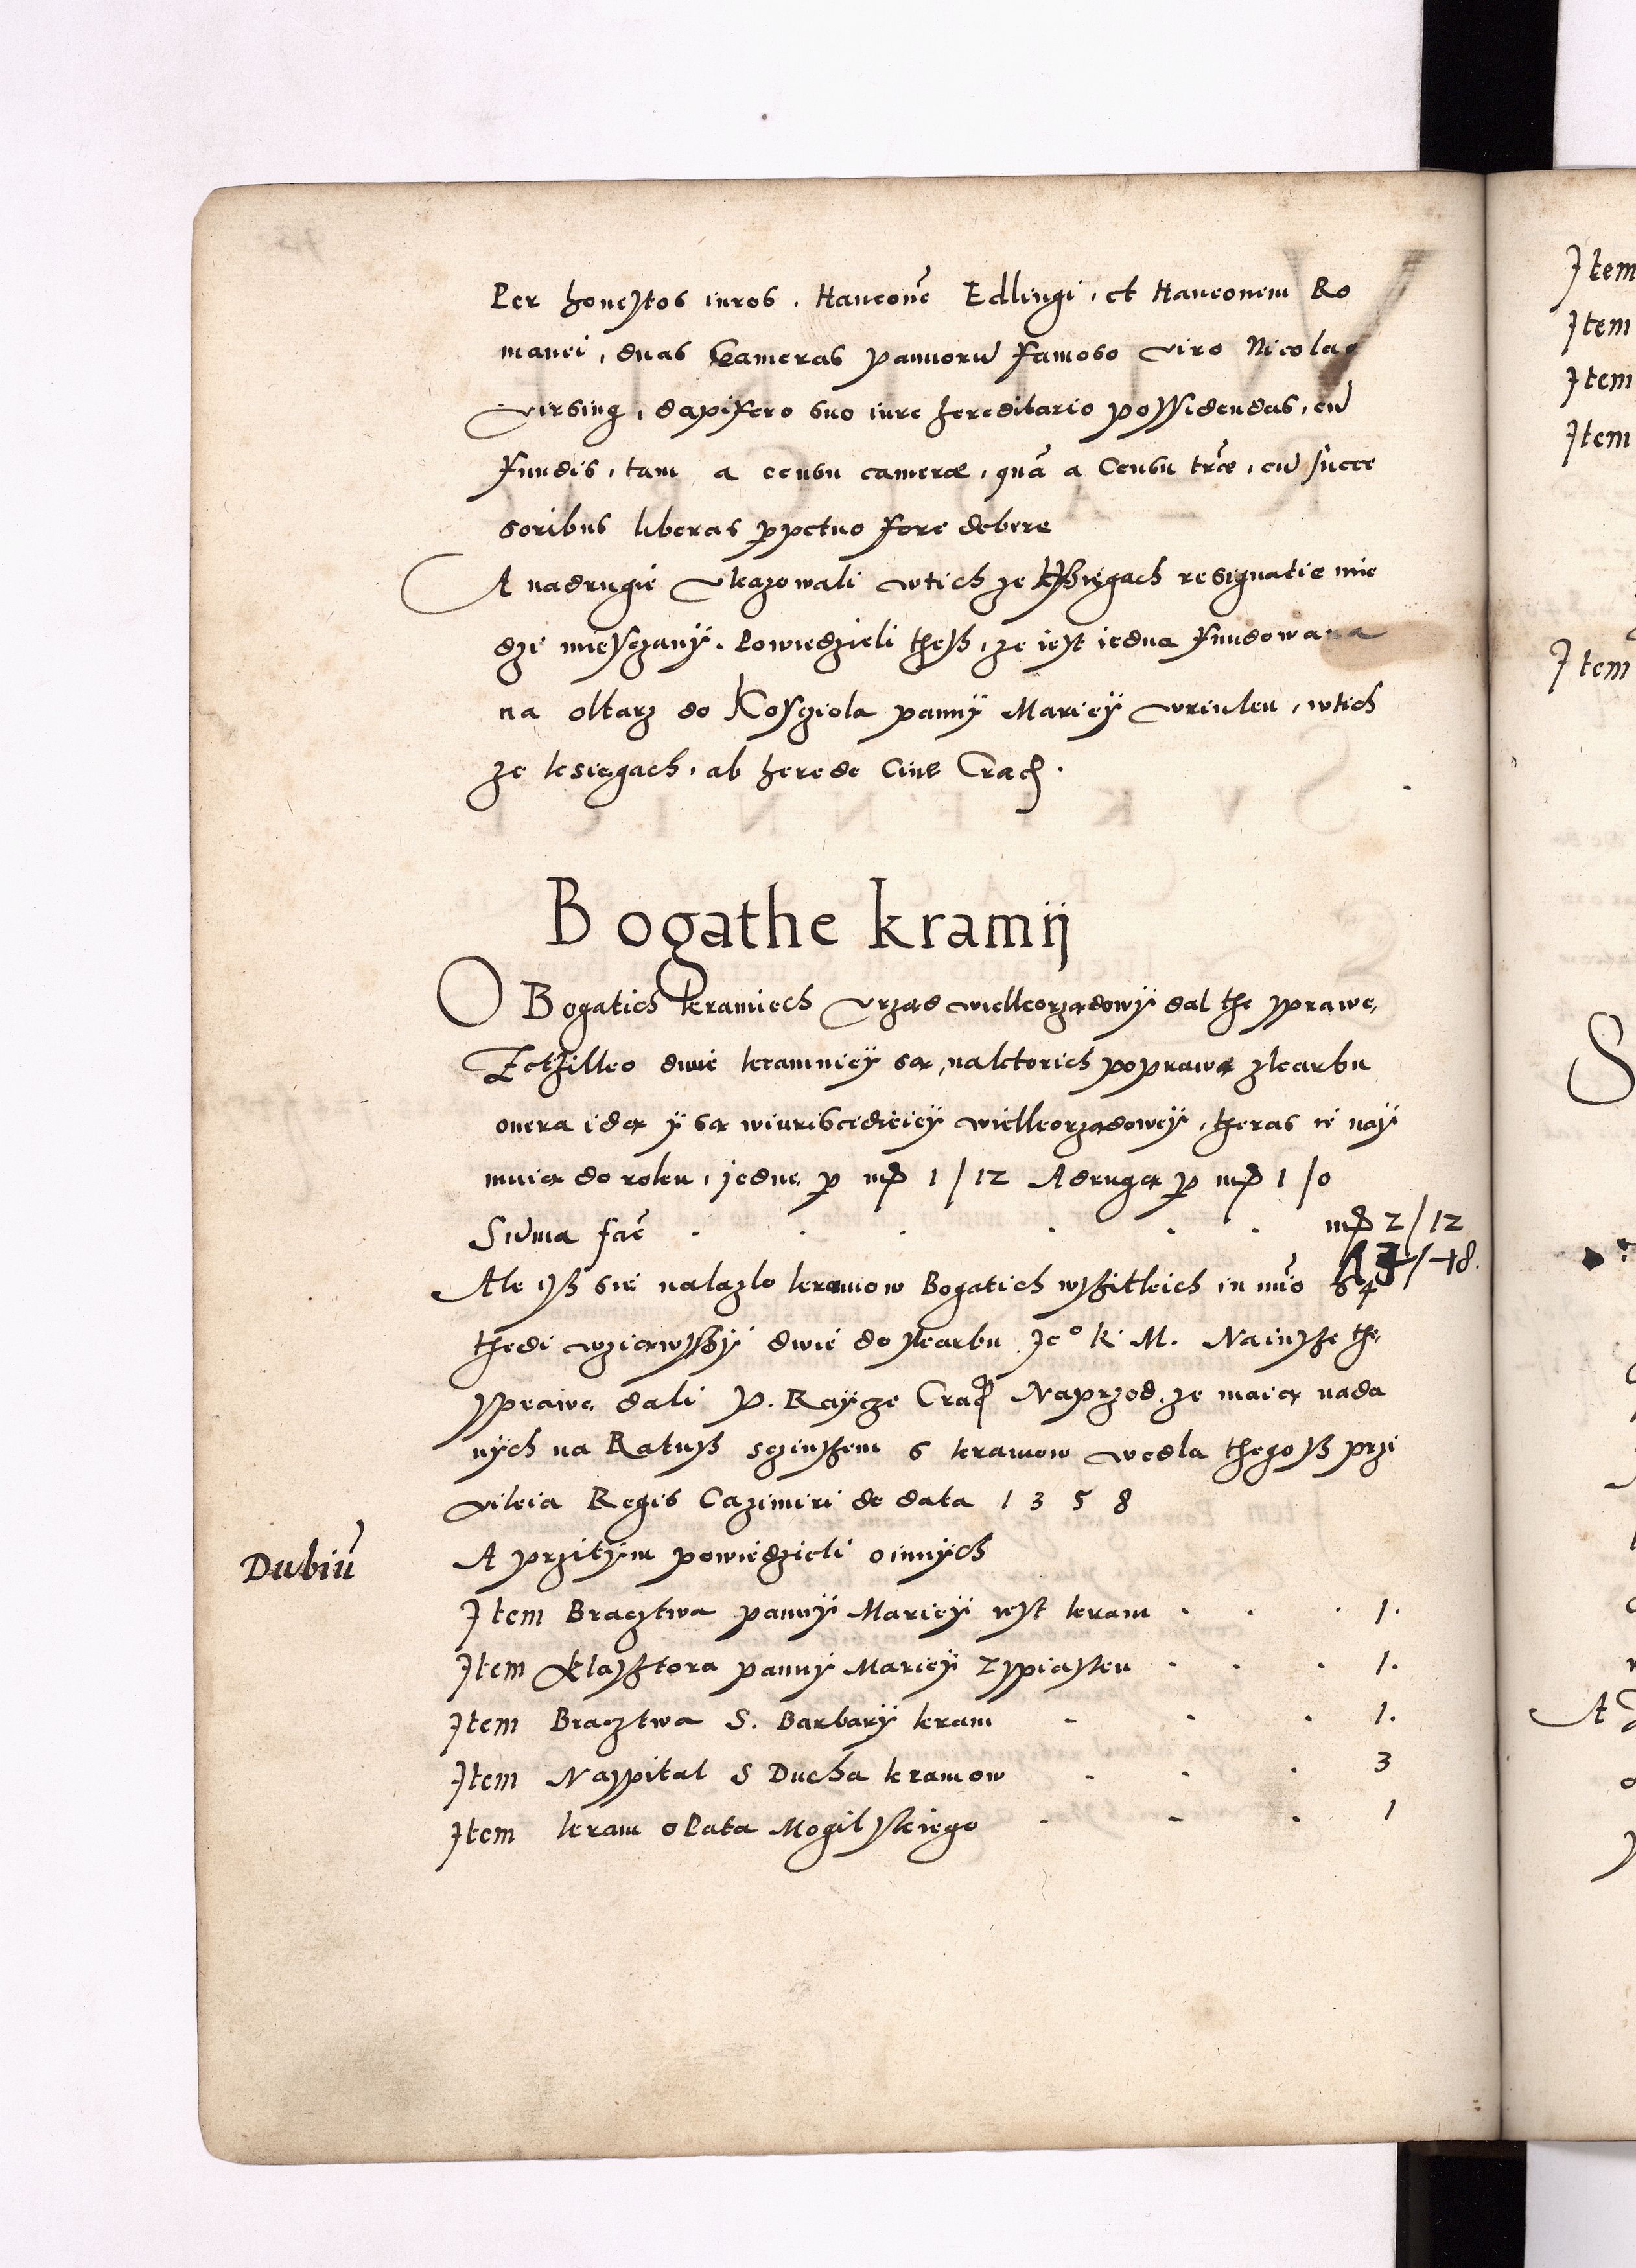 Per honestos iuros, Hanconē Edlingi, et Hanconem Ro
manci, duas Cameras pannorū famoso viro Nicolao
virsing, dapifero suo iure hereditario possidendas, cū
fundis, tam a censu camerae, quā a Censu trē, cū succe
soribus liberas ppetuo fore debere
A nadrugie vkazowali wtich ze kxięgach resignatie mie
dzi miesczany. Powiedzieli theß, ze iest iedna fundowana
na oltarz do Kosziola panny Mariey wrinku, wtich
ze ksiegach, ab herede Ciue Crac.
Bogathe kramij
O Bogatich kramiech vrząd wielkorządowy dal the sprawę,
dwie kramnicy są, naktorich poprawą zkarbu
onera idą y są wiurisdictiey wielkorządowey, theras ie nay
muią do roku, jednę p mp 1/12 A drugą p mp 1/0
Sūma facē . . . . . mp 2/12
/48.
Ale yß sie nalazlo kramow Bogatich wßitkich in nūo 64
thedi wziąwßy dwie do skarbu Je° K. M. Nainße thę
sprawę dali P. Raycze Crac Naprzod, ze maią nada
nych na Ratuß sczinßem 6 kramow wedla thegoß przi
vileia Regis Cazimiri de data 1358
Dubiū
A przitym powiedzieli oinnych
Item Bracztwa panny Mariey iest kram . . . 1.
Item klaßtora panny Mariey Zypiasku . . . 1.
Item Bracztwa S. Barbary kram . . . 1.
Item Naspital S Ducha kramow . . . 3
Item kram oPata Mogilskiego . . . 1
Item
Item
Item
Item
Item